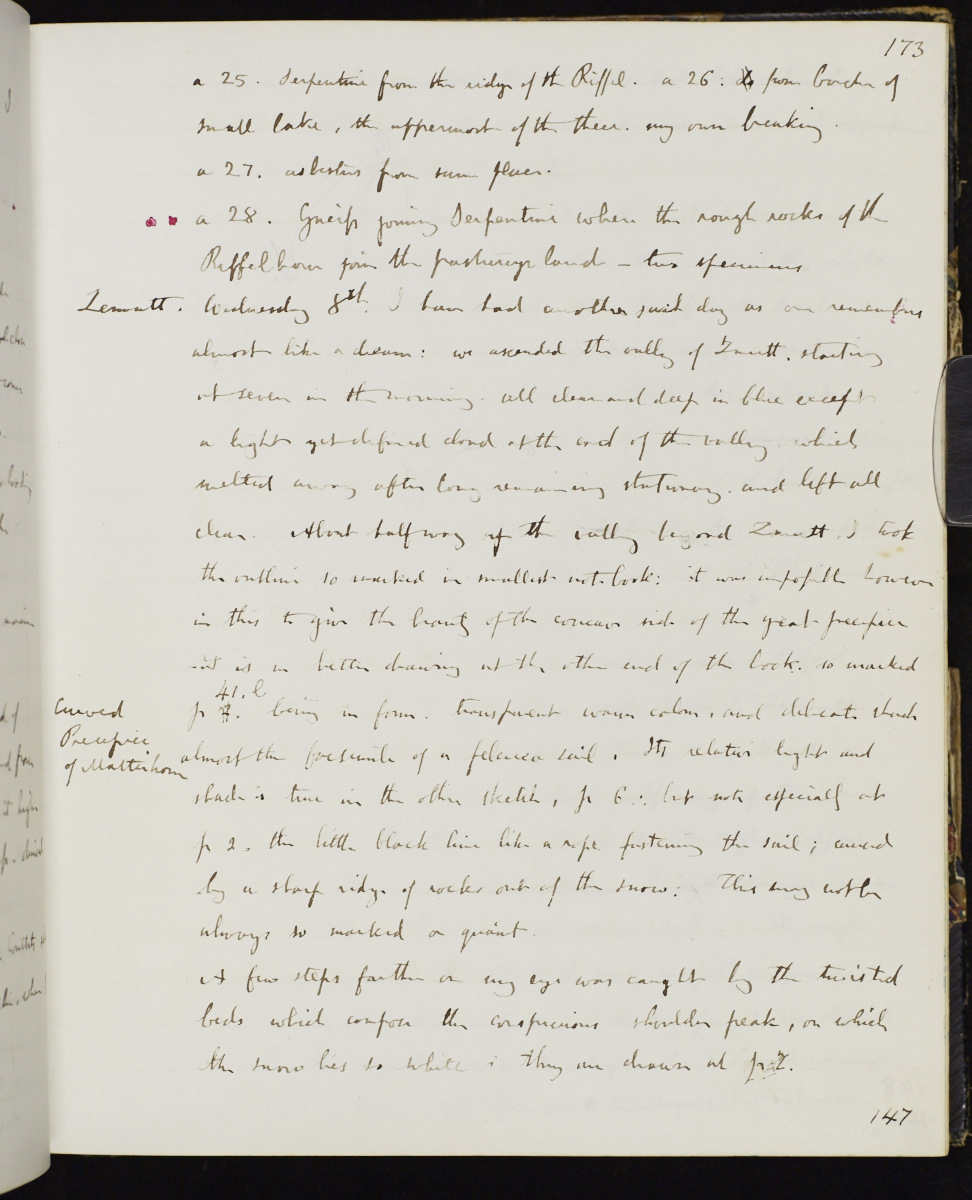 173
a 25. Serpentine from the ridge of the Riffel. a 26: Do from border of
small lake, the uppermost of the three. my own breaking.
a 27. asbestus from same place.
a 28. Gneiss joining Serpentine where the rough rocks of the
Riffelhorn join the pasturage land - two specimens
Zermatt. Wednesday 8th. I have had another such day as one remembers
almost like a dream: we ascended the valley of Zmutt, starting
at seven in the morning. all clear and deep in blue except
a light yet defined cloud at the end of the valley which
melted away after long remaining stationary. and left all
clear. About halfway up the valley beyond Zmutt, I took
the outline so marked in smallest notebook: it was impossible however
in this to give the beauty of the concave side of the great precipice
it is in better drawing at the other end of the book. so marked
41. b
p 7. being in form. transparent warm colour, and delicate shade
Curved
Precipice
of Matterhorn
almost the facsimile of a felucca sail. Its relative light and
shade is true in the other sketch, p 6: but note especially at
p 2. the little black line like a rope fastening the sail; caused
by a sharp ridge of rocks out of the snow: This may not be
always so marked or quaint.
A few steps farther on my eye was caught by the twisted
beds which compose the conspicuous shoulder peak, on which
the snow lies so white: they are drawn at p 7.
147